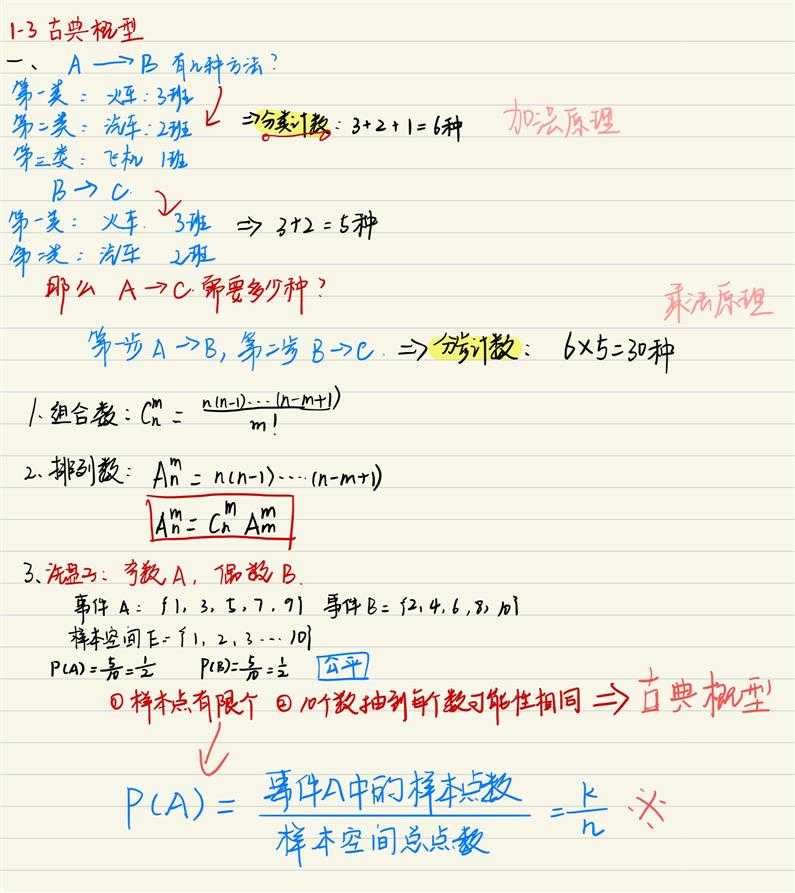 1-3 古典概型
一、 A → B 有几种方法?
第一类: 火车: 3班
第二类: 汽车: 2班 ⇒ 分类计数: 3+2+1=6种 加法原理
第三类: 飞机 1班
B → C.
第一类: 火车. 3班 ⇒ 3+2=5种
第二类: 汽车 2班
那么 A → C 需要多少种?
乘法原理
第一步 A → B, 第二步 B → C. ⇒ 分步计数: 6×5=30种
1. 组合数: C_n^m = n(n-1)···(n-m+1) / m!
2. 排列数: A_n^m = n(n-1)····(n-m+1)
A_n^m = C_n^m A_m^m
3. 洗盘子: 奇数A, 偶数B.
事件A: {1, 3, 5, 7, 9} 事件B = {2, 4, 6, 8, 10}
样本空间E = {1, 2, 3 ··· 10}
P(A) = 5/10 = 1/2 P(B) = 5/10 = 1/2 公平
① 样本点有限个 ② 10个数抽到每个数可能性相同 ⇒ 古典概型
P(A) = 事件A中的样本点数 / 样本空间总点数 = k/n ※